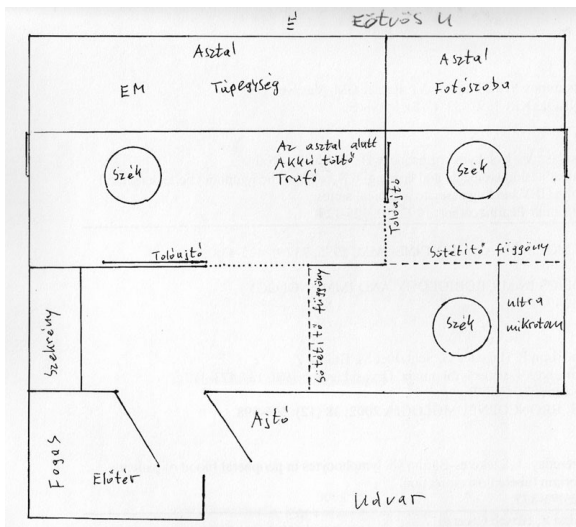 III.
Eötvös u
Asztal
EM Tápegység
Asztal
Fotószoba
Az asztal alatt
Akku töltő
Trafó
Szék
Tolóajtó
Szék
Tolóajtó
Sötétítő függöny
Szekrény
Sötétítő függöny
Szék
ultra
mikrotom
Fogas
Előtér
Ajtó
Udvar